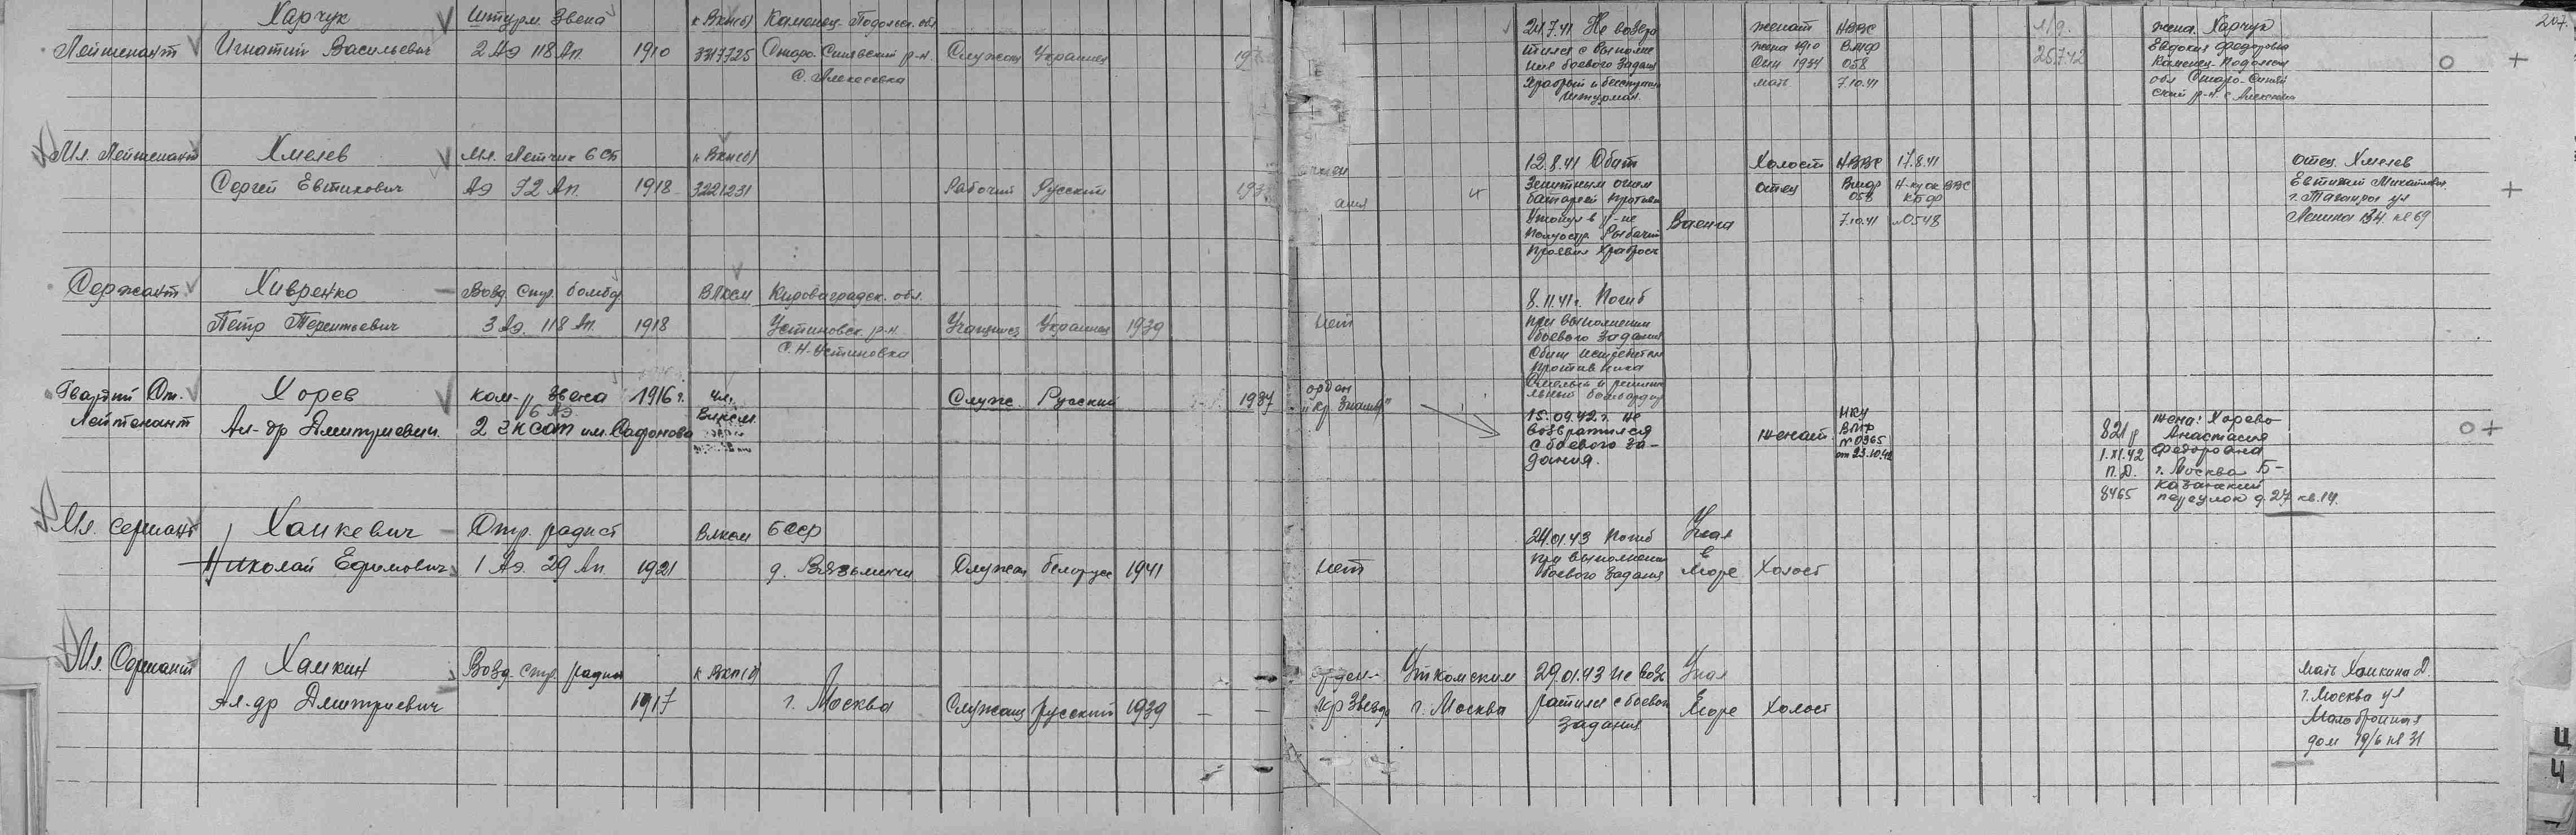 207.
Харчук
Лейтенант Игнатий Васильевич
Штурм. Звена
2 Аэ 118 Ап.
1910
к ВКП(б)
3317725
Каменец-Подольск. обл.
Старо-Синявский р-н.
С. Алексеевка
Служащ Украинец
24.7.41 Не возвра
тился с выполне
ния боевого задания
Храбрый и бесстрашн
Штурман.
женат
жена 1910
Сын 1934
мать
НВВС
ВМФ
058
7.10.41
25.7.42
жена Харчук
Евдокия Федоровна
Каменец-Подольск
обл Старо-Синяв
ский р-н. с Алексеев
О +
Мл. Лейтенант Хмелев
Сергей Евтихович
Мл. Летчик БСБ
Аэ 72 Ап
1918
к ВКП(б)
3221231
Рабочий Русский
12.8.41 Сбит
Зенитным огнем
батарей противн
Утонул в р-не
полуостр. Рыбачий
Проявил храбрость
Ваенга
Холост
отец
НВВС
ВМФ
058
7.10.41
17.8.41
Н-ку ок ВВС
КБФ
0548
отец Хмелев
Евтихий Михайлович
г. Таганрог ул
Ленина 134 кв 69
+
Сержант Хивренко
Петр Терентьевич
Возд. Стр. бомбд
3 Аэ. 118 Ап.
1918
ВЛКСМ
Кировоградск. обл.
Устиновск. р-н.
С. Н-Устиновка
Учащийся Украинец 1939
нет
8.11.41г. Погиб
при выполнении
боевого задания
Сбит истребителем
противника
Смелый и решите
льный бомбардир
Гвардии Ст. Хорев
Лейтенант Ал-др Дмитриевич.
ком-р звена
6 Аэ
2 ГКСАП им. Сафонова
1916 г.
чл.
ВЛКСМ
Служ. Русский
1937
орден
"Кр. Знамя"
15.09.42 г. не
возвратился
с боевого за-
дания.
женат
НКУ
ВМФ
№0965
от 23.10.42
821 р
1.XI.42
п.д.
8465
жена: Хорева
Анастасия
Федоровна
г. Москва Б-
Казанский
переулок д. 27 кв. 14.
О +
Мл. Сержант Ханкевич
Николай Ефимович
Стр. радист
1 Аэ. 29 Ап.
1921
ВЛКСМ
БССР
Служащ белорус 1941
нет
24.01.43 Погиб
при выполнении
боевого задания
Упал
в
море
Холост
Мл. Сержант Ханкин
Ал-др Дмитриевич
Возд. стр. радист
1917
к ВКП(б)
г. Москва
Служащ русский 1939
орден
Кр Звезда
г. Москва
29.01.43 Не возв
ратился с боевого
задания
Упал
в
море
Холост
мать Ханкина Д.
г. Москва ул
Малобронная
дом 19/6 кв 31